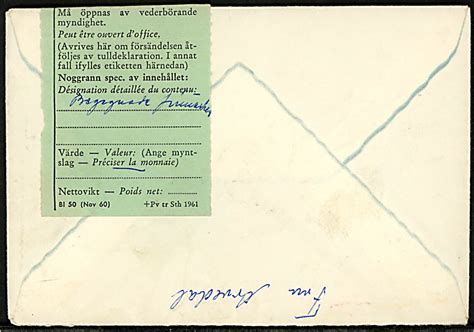 Må öppnas av vederbörande
myndighet.
Peut être ouvert d'office.
(Avrives här om försändelsen åt-
följes av tulldeklaration. I annat
fall ifylles etiketten härnedan)
Noggrann spec. av innehållet:
Désignation détaillée du contenu:
Begagnade frimärken
Värde — Valeur: (Ange mynt-
slag — Préciser la monnaie)
Nettovikt — Poids net:
Bl 50 (Nov 60) +Pv tr Sth 1961
Fru